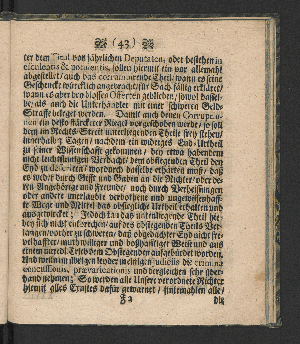 (43)
ter dem Titul von jährlichen Deputaten, oder bestehen in
esculentis & potulentis, sollen hiermit ein vor allemahl
abgestellet / auch das corrumpirende Theil, wann es seine
Geschencke würcklich angebracht, für Sach-fällig erkläret /
wann es aber bey blossen Offerten geblieben / sowol dassel-
be, als auch die Unterhändler mit einer schweren Geld-
Straffe beleget werden. Damit auch denen Corruptio-
nen ein desto stärckerer Riegel vorgeschoben werde / so soll
dem im Rechts-Streit unterliegenden Theile frey stehen /
innerhalb Tagen / nachdem ein widriges End-Urtheil
zu seiner Wissenschafft gekommen / bey etwa habendem
nicht leichtsinnigen Verdacht / dem obsiegenden Theil den
Eyd zu deferiren / wordurch dasselbe erhärten muß / daß
es weder durch Gifft und Gaben an die Richter / oder de-
ren Angehörige und Freunde / noch durch Verheissungen
oder andere unerlaubte verbothene und ungewissenhaff-
te Wege und Mittel das obsiegliche Urtheil erhalten und
ausgewircket; Jedoch daß das unterliegende Theil hie-
bey sich nicht entbrechen / auf des obsiegenden Theils Ver-
langen vorher zu schweren / daß obgedachter Eyd nicht fre-
velhaffter / muthwilliger und boßhafftiger Weise und aus
einem üblen Trieb dem Obsiegenden aufgebürdet worden.
Und weiln im übrigen leyder in einigen Judiciis die crimina
concussionis, prævaricationis und dergleichen sehr über-
hand nehmen; So werden alle Unsere verordnete Richter
hiemit alles Ernstes dafür gewarnet / sintemahlen alle /
F 2
die